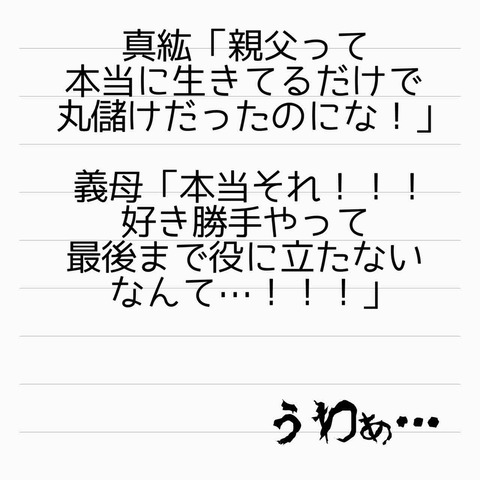 真紘「親父って
本当に生きてるだけで
丸儲けだったのにな！」
義母「本当それ！！！
好き勝手やって
最後まで役に立たない
なんて…！！！」
うわぁ…